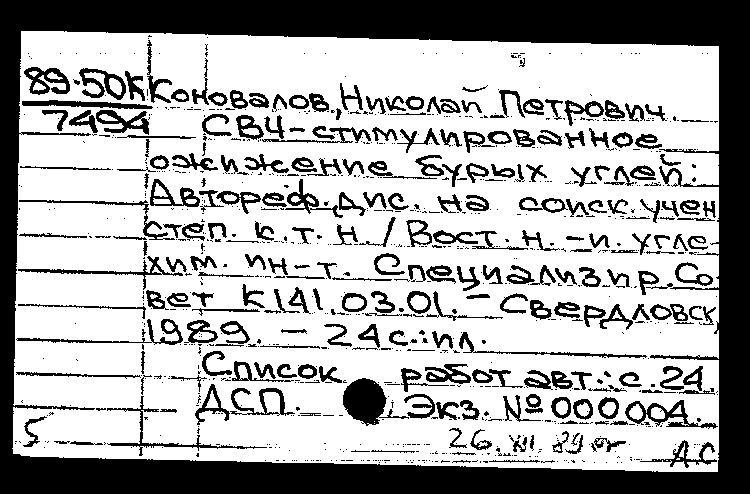 89-50К Коновалов, Николай Петрович.
7494 СВЧ-стимулированное
ожижение бурых углей:
Автореф. дис. на соиск. учен
степ. к.т.н. / Вост. н.-и. угле-
хим. ин-т. Специализир. Со-
вет К141.03.01. - Свердловск,
1989. - 24 с.: ил.
Список работ авт.: с. 24.
ДСП. Экз. № 000004.
5 26. XII. 89 А.С